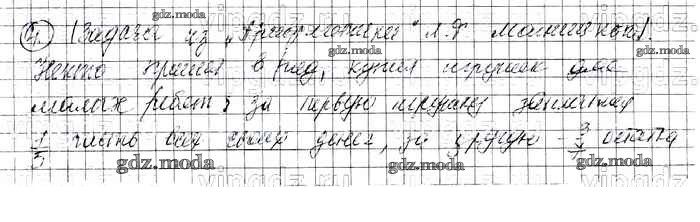 4. (Задача из „Арифметики" Л.Ф Магницкого).
Некто пришел в ряд, купил игрушек для
малых ребят: за первую игрушку заплатил
1/5 часть всех своих денег, за другую - 3/7 остатка
gdz.moda